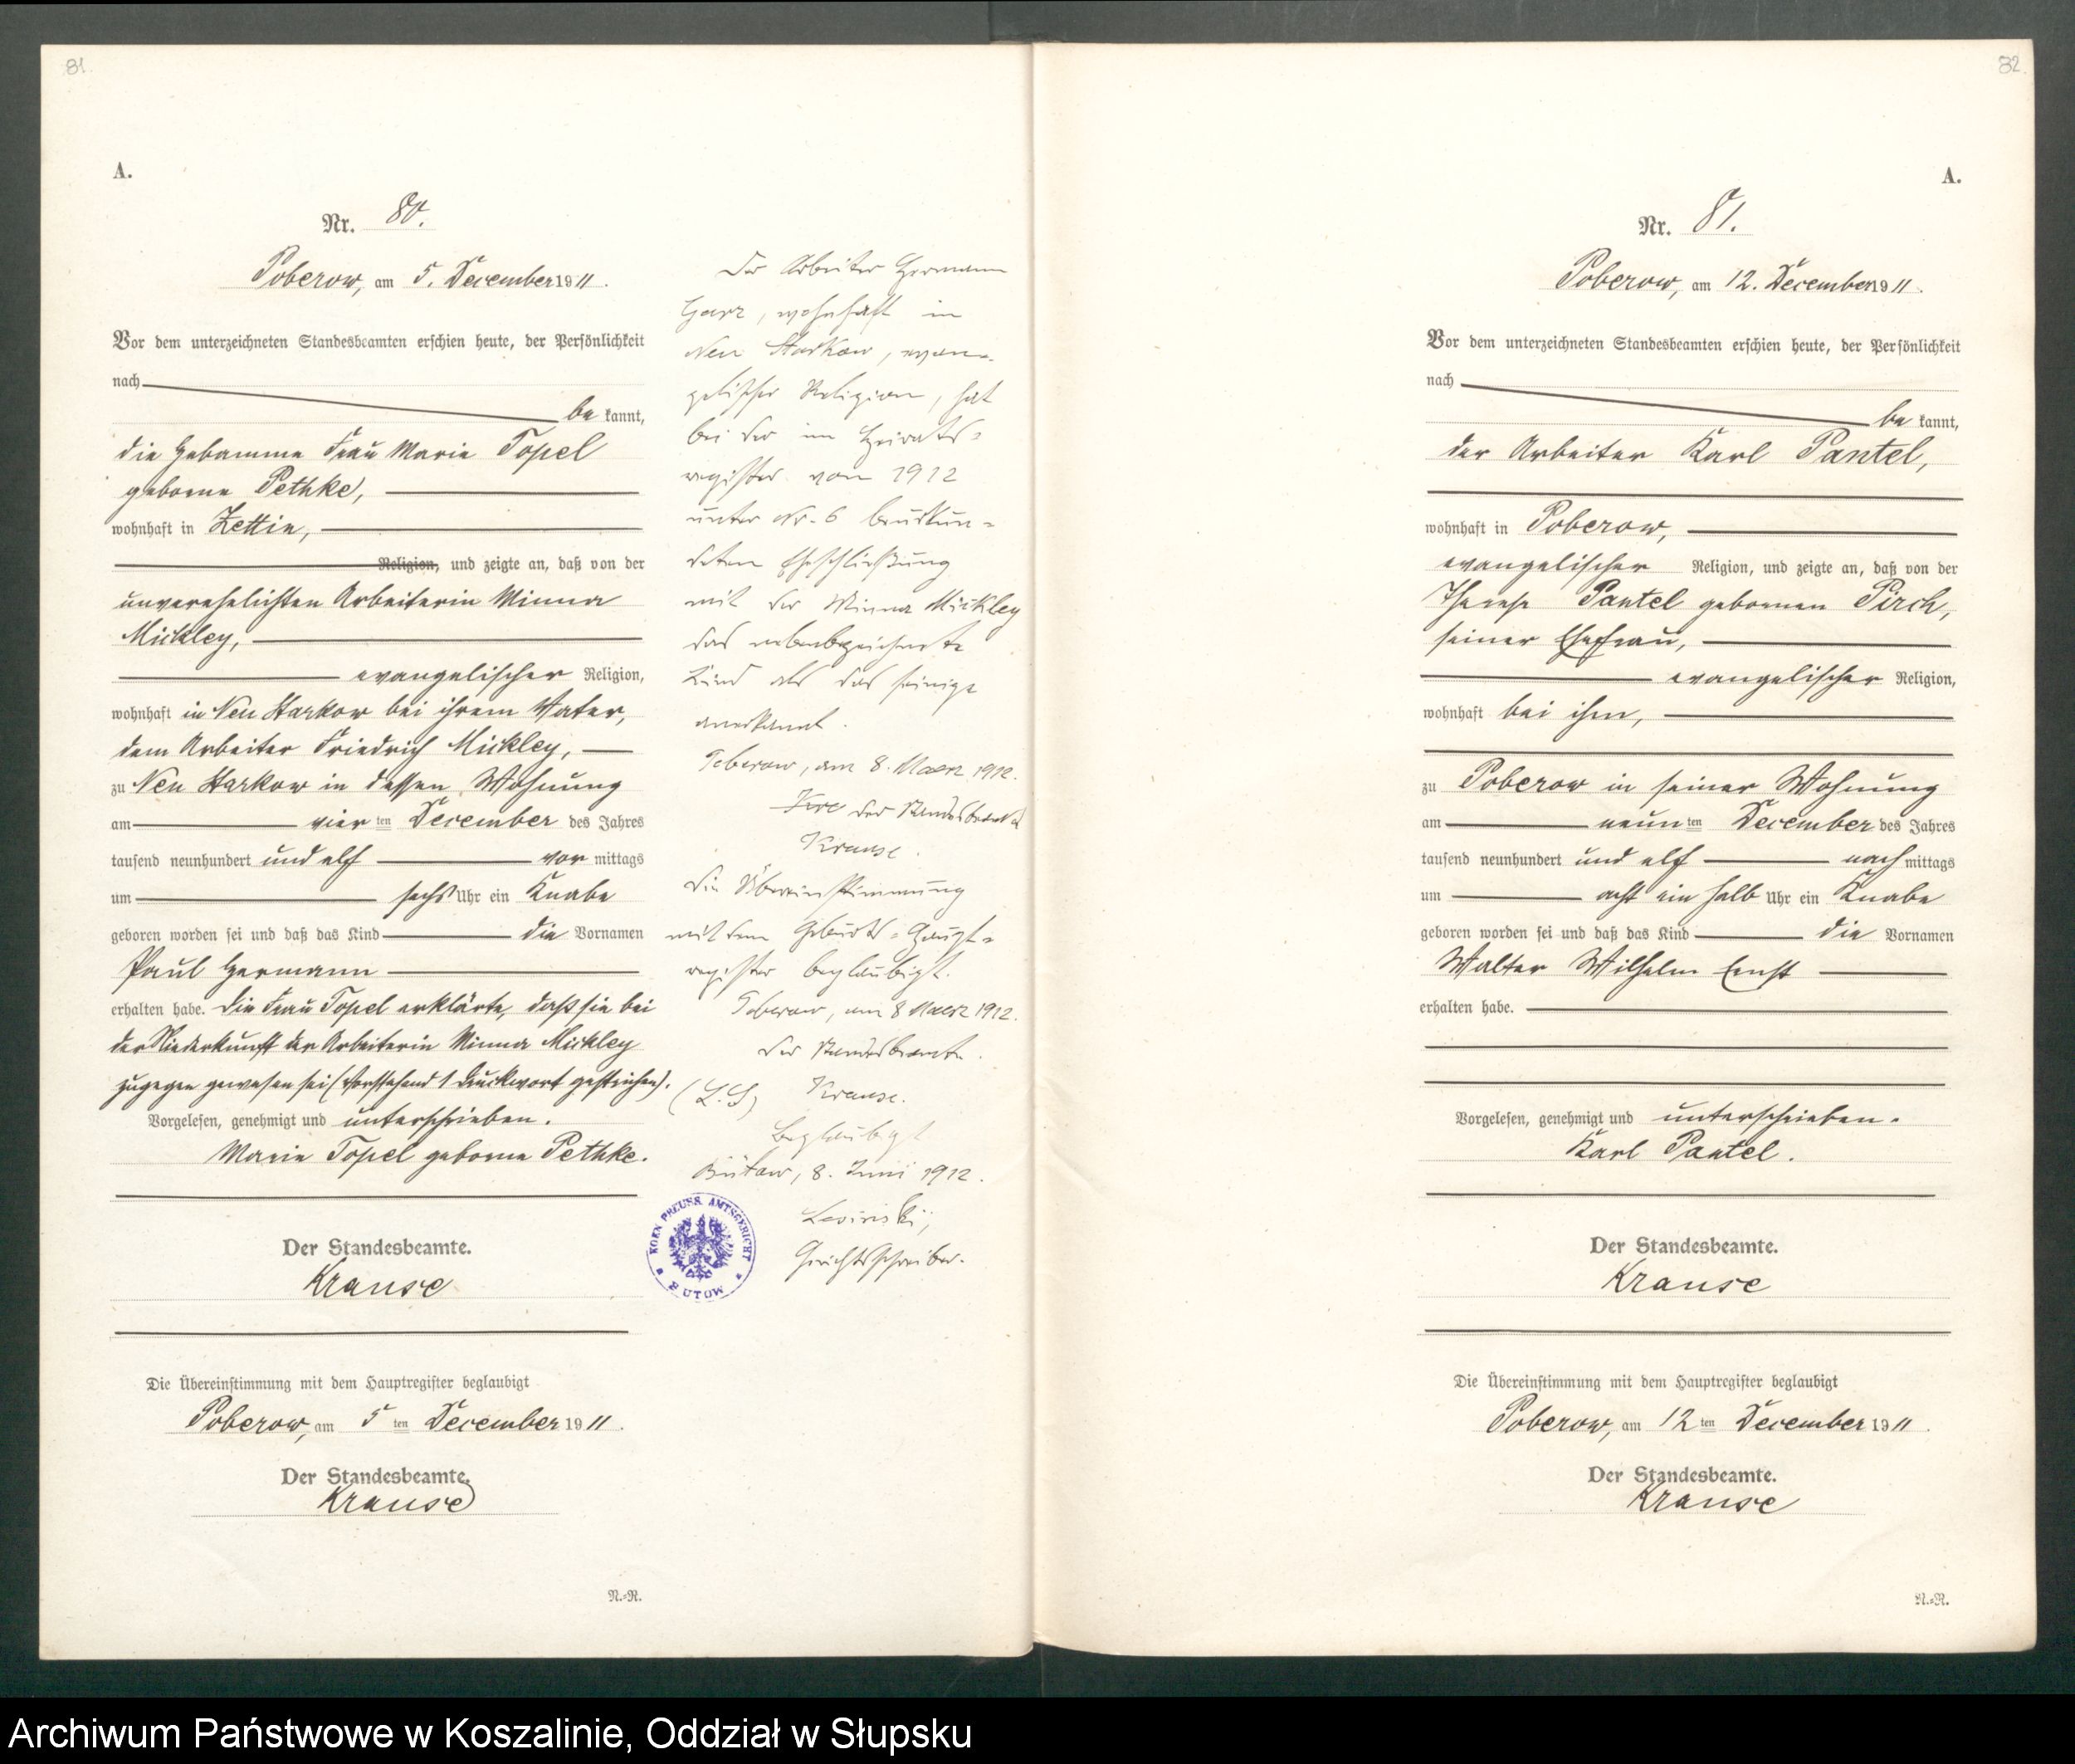 81.
A.
Nr. 80.
Poberow, am 5. December 1911.
Vor dem unterzeichneten Standesbeamten erschien heute, der Persönlichkeit
nach
be kannt,
die Hebamme Frau Marie Topel
geborne Pethke,
wohnhaft in Zettin,
Religion, und zeigte an, daß von der
unverehelichten Arbeiterin Minna
Mickley,
evangelischer Religion,
wohnhaft in Neu Starkow bei ihrem Vater,
dem Arbeiter Friedrich Mickley,
zu Neu Starkow in dessen Wohnung
am vier ten December des Jahres
tausend neunhundert und elf vor mittags
um sechs Uhr ein Knabe
geboren worden sei und daß das Kind die Vornamen
Paul Hermann
erhalten habe. Die Frau Topel erklärte, daß sie bei
der Niederkunft der Arbeiterin Minna Mickley
zugegen gewesen sei (Vorstehend 1 Druckwort gestrichen).
Vorgelesen, genehmigt und unterschrieben.
Marie Topel geborne Pethke.
Der Standesbeamte.
Krause
Die Übereinstimmung mit dem Hauptregister beglaubigt
Poberow, am 5 ten December 1911.
Der Standesbeamte.
Krause
N.=R.
Der Arbeiter Hermann
Garz, wohnhaft in
Neu Starkow, evan-
gelischer Religion, hat
bei der im Heirats-
register von 1912
unter Nr. 6 beurkun-
deten Eheschließung
mit der Minna Mickley
das nebenbezeichnete
Kind als das seinige
anerkannt.
Poberow, am 8. Maerz 1912.
der Standesbeamte
Krause.
Die Übereinstimmung
mit dem Geburts-Haupt-
register beglaubigt.
Poberow, am 8 Maerz 1912.
Der Standesbeamte.
(L.S) Krause.
Beglaubigt
Bütow, 8. Juni 1912.
Gerichtsschreiber.
KOEN. PREUSS. AMTSGERICHT
* BUTOW *
82.
A.
Nr. 81.
Poberow, am 12. December 1911.
Vor dem unterzeichneten Standesbeamten erschien heute, der Persönlichkeit
nach
be kannt,
der Arbeiter Karl Pantel,
wohnhaft in Poberow,
evangelischer Religion, und zeigte an, daß von der
Therese Pantel gebornen Pirch,
seiner Ehefrau,
evangelischer Religion,
wohnhaft bei ihm,
zu Poberow in seiner Wohnung
am neun ten December des Jahres
tausend neunhundert und elf nach mittags
um acht ein halb Uhr ein Knabe
geboren worden sei und daß das Kind die Vornamen
Walter Wilhelm Ernst
erhalten habe.
Vorgelesen, genehmigt und unterschrieben.
Karl Pantel.
Der Standesbeamte.
Krause
Die Übereinstimmung mit dem Hauptregister beglaubigt
Poberow, am 12 ten December 1911.
Der Standesbeamte.
Krause
N.=R.
Archiwum Państwowe w Koszalinie, Oddział w Słupsku